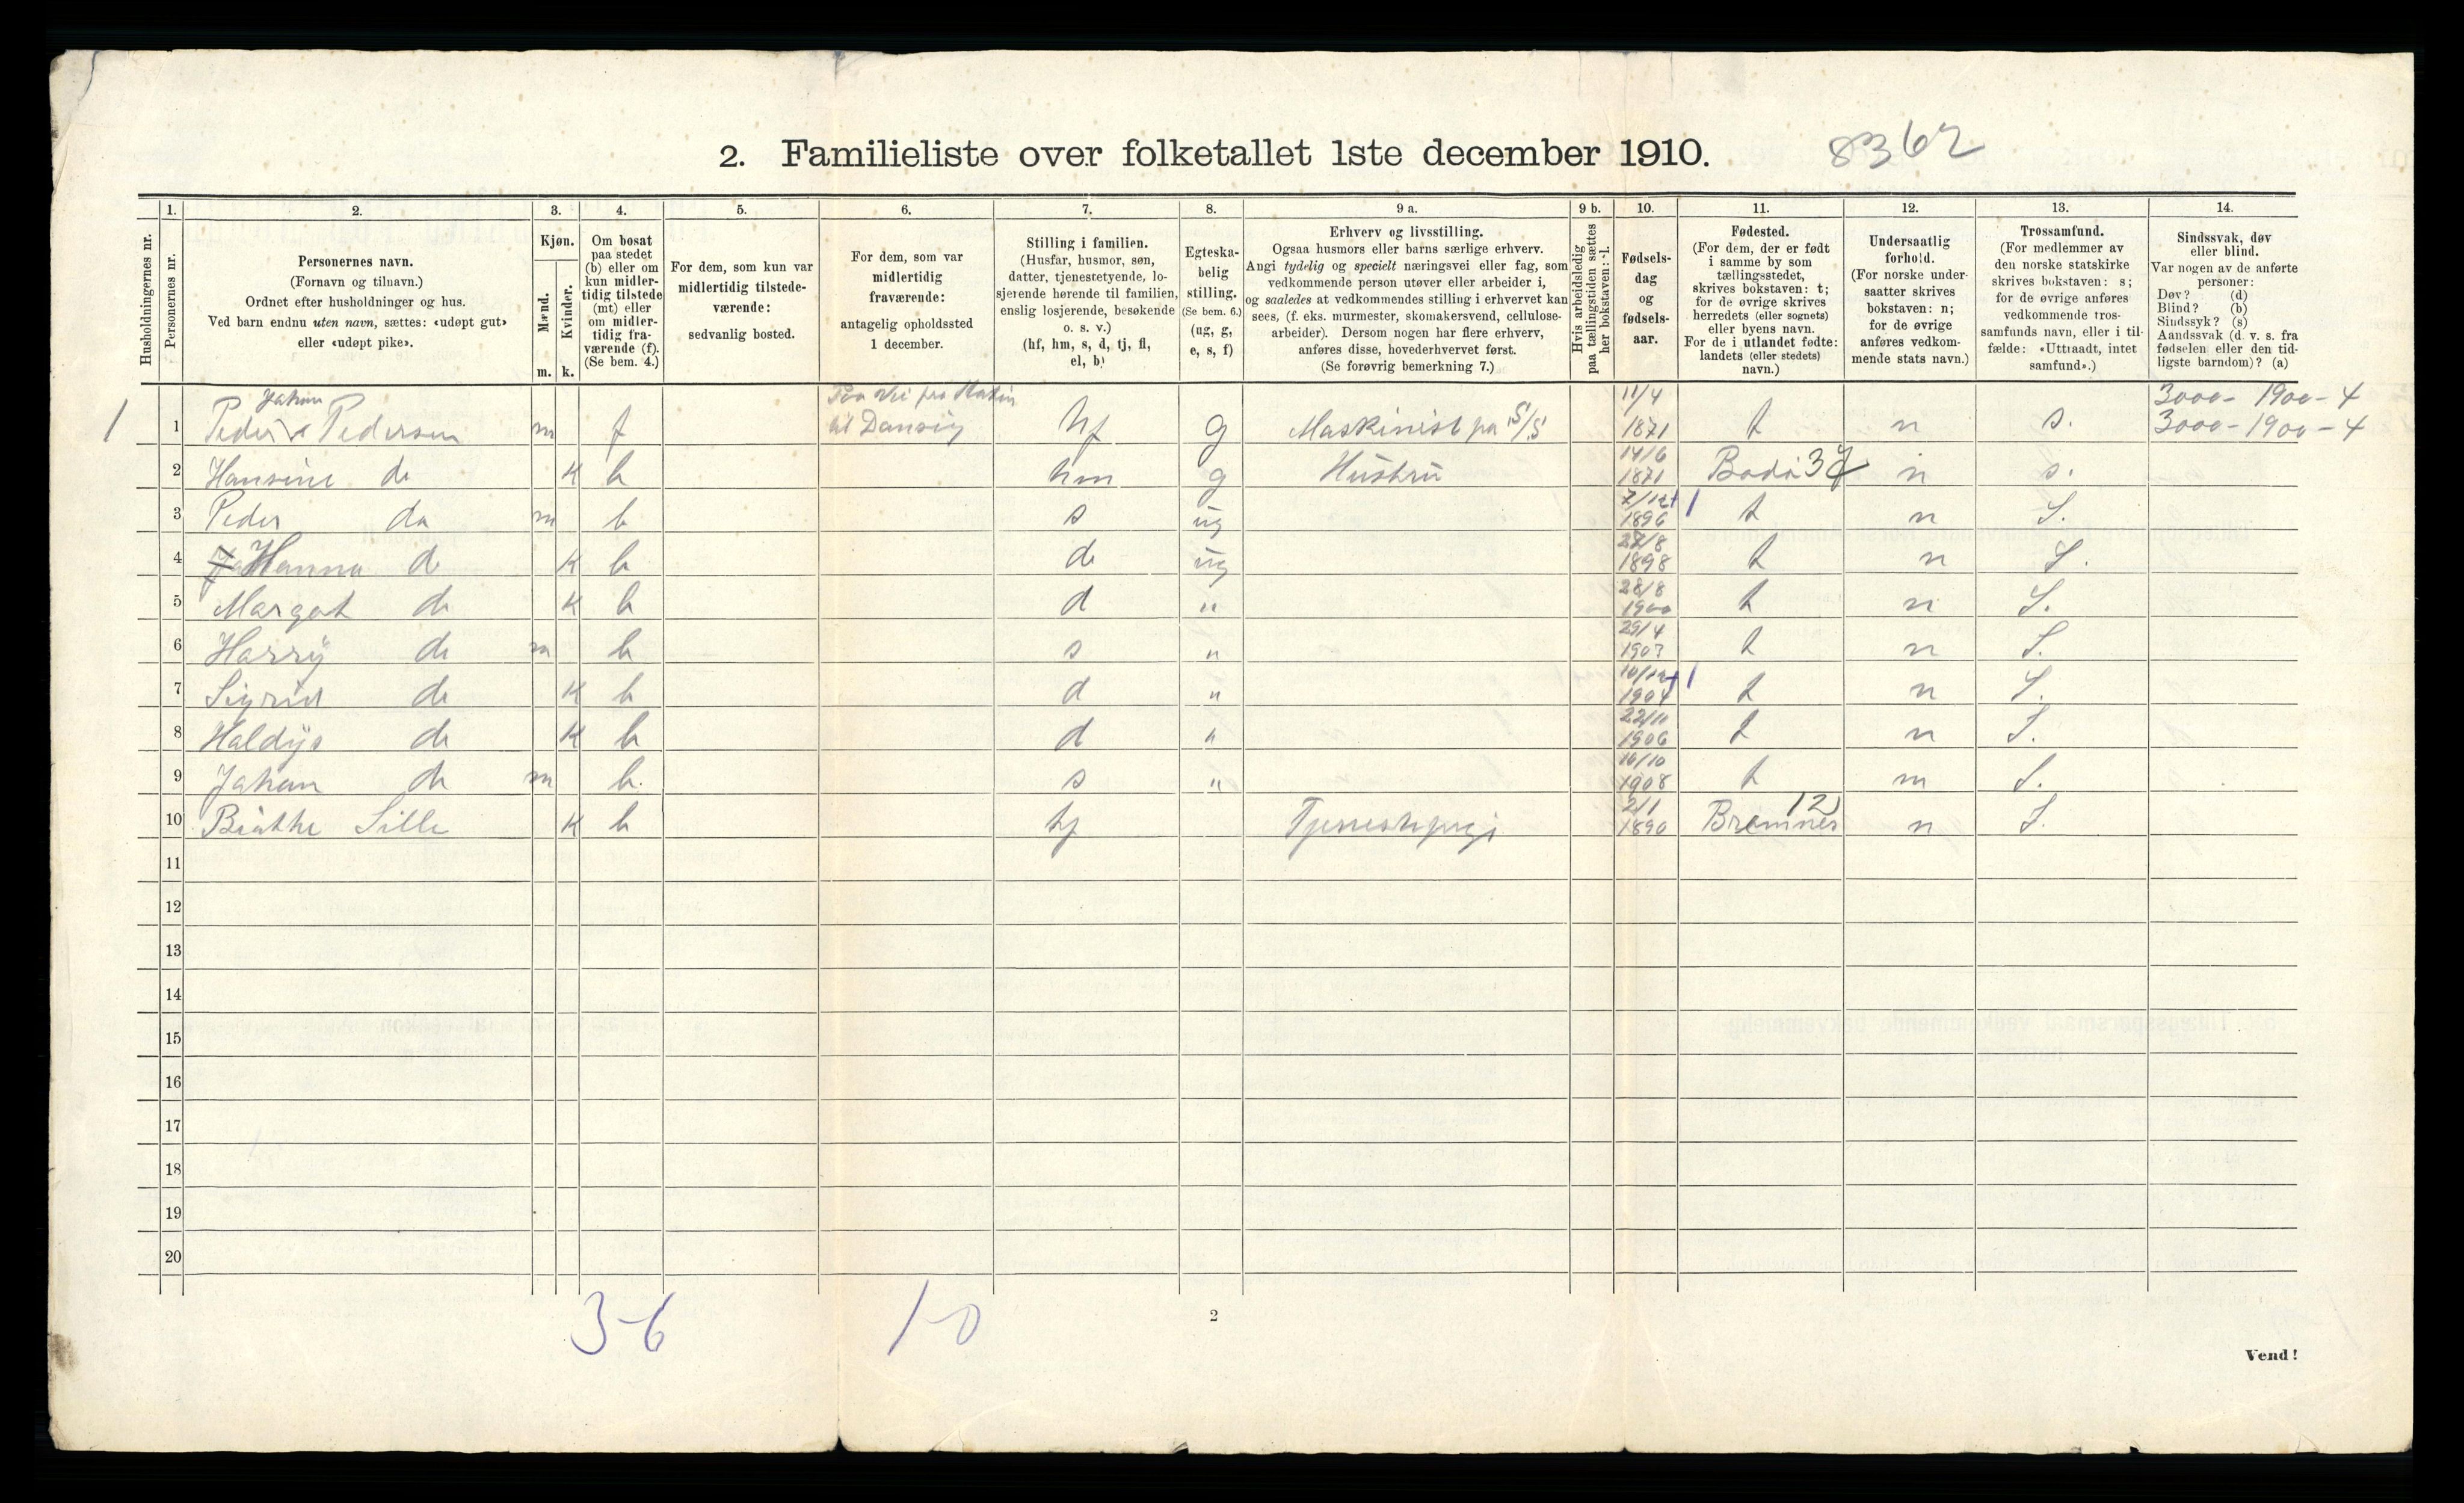 2. Familieliste over folketallet 1ste december 1910. 8362
Husholdningernes nr.
1. Personernes nr.
2. Personernes navn.
(Fornavn og tilnavn.)
Ordnet efter husholdninger og hus.
Ved barn endnu uten navn, sættes: «udøpt gut»
eller «udøpt pike».
3. Kjøn.
Mænd. m.
Kvinder. k.
4. Om bosat
paa stedet
(b) eller om
kun midler-
tidig tilstede
(mt) eller
om midler-
tidig fra-
værende (f).
(Se bem. 4.)
5. For dem, som kun var
midlertidig tilstede-
værende:
sedvanlig bosted.
6. For dem, som var
midlertidig
fraværende:
antagelig opholdssted
1 december.
7. Stilling i familien.
(Husfar, husmor, søn,
datter, tjenestetyende, lo-
sjerende hørende til familien,
enslig losjerende, besøkende
o. s. v.)
(hf, hm, s, d, tj, fl,
el, b)
8. Egteska-
belig
stilling.
(Se bem. 6.)
(ug, g,
e, s, f)
9 a. Erhverv og livsstilling.
Ogsaa husmors eller barns særlige erhverv.
Angi tydelig og specielt næringsvei eller fag, som
vedkommende person utøver eller arbeider i,
og saaledes at vedkommendes stilling i erhvervet kan
sees, (f. eks. murmester, skomakersvend, cellulose-
arbeider). Dersom nogen har flere erhverv,
anføres disse, hovederhvervet først.
(Se forøvrig bemerkning 7.)
9 b. Hvis arbeidsledig
paa tællingstiden sættes
her bokstaven: l.
10. Fødsels-
dag
og
fødsels-
aar.
11. Fødested.
(For dem, der er født
i samme by som
tællingsstedet,
skrives bokstaven: t;
for de øvrige skrives
herredets (eller sognets)
eller byens navn.
For de i utlandet fødte:
landets (eller stedets)
navn.)
12. Undersaatlig
forhold.
(For norske under-
saatter skrives
bokstaven: n;
for de øvrige
anføres vedkom-
mende stats navn.)
13. Trossamfund.
(For medlemmer av
den norske statskirke
skrives bokstaven: s;
for de øvrige anføres
vedkommende tros-
samfunds navn, eller i til-
fælde: «Uttraadt, intet
samfund».)
14. Sindssvak, døv
eller blind.
Var nogen av de anførte
personer:
Døv? (d)
Blind? (b)
Sindssyk? (s)
Aandssvak (d. v. s. fra
fødselen eller den tid-
ligste barndom)? (a)
Johan Paa vei fra 11/4 3000 - 1900 - 4
1 1 Peder Pedersen m f til Danzig hf g Maskinist pa S/S 1871 t n s. 3000 - 1900 - 4
2 Hansine do K b hm g Hustru 14/6 1871 Bodø 37 n s.
3 Peder do m b s ug 7/12 1896 t n S.
4 Hanna d K b d ug 27/8 1898 t n S.
5 Margot do K b d " 28/8 1900 t n S.
6 Harry do m b s " 29/4 1903 t n S.
7 Sigrid do K b d " 10/12 1904 t n S.
8 Haldis do K b d " 22/10 1906 t n S.
9 Johan do m b. s " 16/10 1908 t n S.
10 Lille K b tj 2/1 1890 Bremnes 12 n S.
11
12
13
14
15
16
17
18
19
20
3-6 1-0
2
Vend!